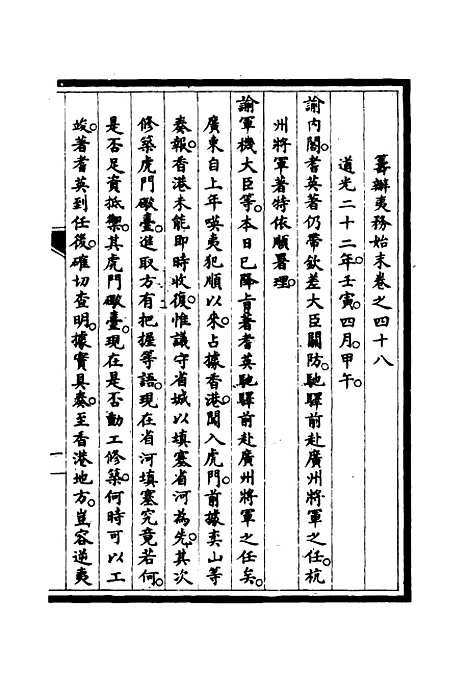 籌辦夷務始末卷之四十八
道光二十二年壬寅四月甲午
諭內閣耆英著仍帶欽差大臣關防馳驛前赴廣州將軍之任杭
州將軍著特依順署理
諭軍機大臣等本日已降旨著耆英馳驛前赴廣州將軍之任矣
廣東自上年𠸄夷犯順以來占據香港闖入虎門前據奕山等
奏報香港未能即時收復惟議守省城以填塞省河為先其次
修築虎門礮臺進取方有把握等語現在省河填塞究竟若何
是否足資抵禦其虎門礮臺現在是否動工修築何時可以工
竣著耆英到任後確切查明據實具奏至香港地方豈容逆夷